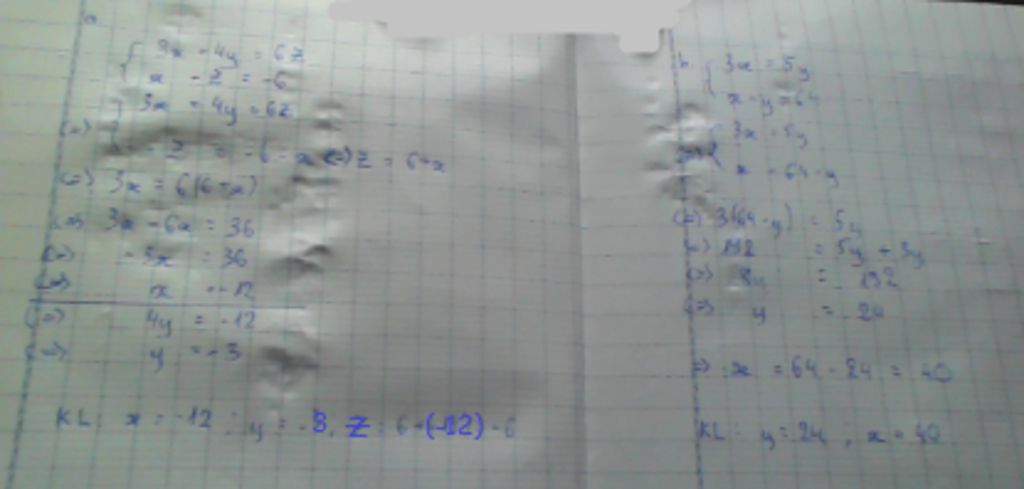 a
3x = 4y = 6z
x - z = -6
3x = 4y = 6z
z = -6 - x (=) z = 6+x
(=) 3x = 6(6+x)
(=) 3x - 6x = 36
(=) -3x = 36
(=) x = -12
(=) 4y = -12
(=) y = -3
KL: x = -12 ; y = -3, z = 6-(-12)
b
3x = 5y
x - y = 64
3x = 5y
x = 64 - y
(=) 3(64 - y) = 5y
(=) 192 = 5y + 3y
(=) 8y = 192
(=) y = 24
=> x = 64 - 24 = 40
KL: y = 24 ; x = 40